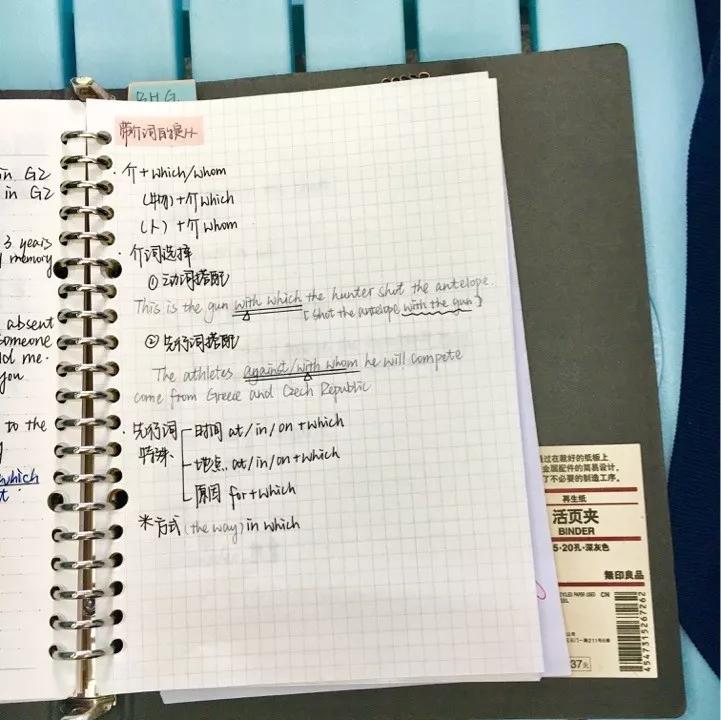 in G2
in G2
3 years
memory
absent
someone
not me.
you
to the
which
BHG
带介词的定从
· 介 + which/whom
(物) + 介 which
(人) + 介 whom
· 介词选择
① 动词搭配
This is the gun with which the hunter shot the antelope.
[shot the antelope with the gun]
② 先行词搭配
The athletes against/with whom he will compete
come from Greece and Czech Republic
· 先行词 时间 at/in/on + which
特殊 地点 at/in/on + which
原因 for + which
※ 方式 (the way) in which
过在裁好的纸板上
金属配件的简易设计,
了不必要的制造工序。
再生纸
活页夹
BINDER
5·20孔·深灰色
無印良品
CYCLED PAPER USED CN
4547315267262